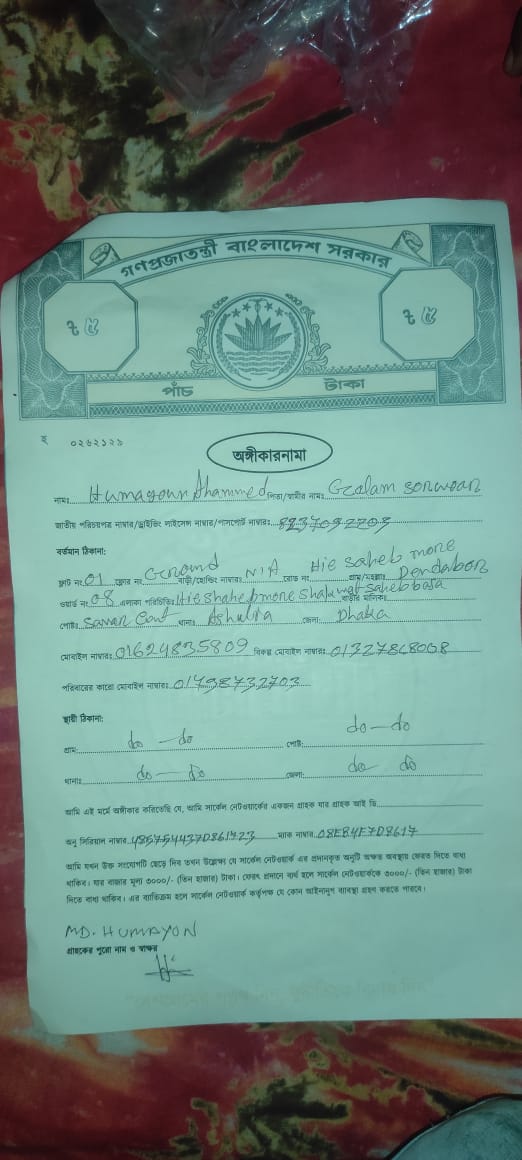 গণপ্রজাতন্ত্রী বাংলাদেশ সরকার
৳ ৫ ৳ ৫
পাঁচ টাকা
অঙ্গীকারনামা
নামঃ Humayoun Ahammed পিতা/স্বামীর নামঃ Golam sorwoar
জাতীয় পরিচয়পত্র নাম্বার/ড্রাইভিং লাইসেন্স নাম্বার/পাসপোর্ট নাম্বারঃ
বর্তমান ঠিকানা:
ফ্লাট নং 01 ফ্লোর নং Ground বাড়ী/হোল্ডিং নাম্বারঃ N'A রোড নং Hie saheb more গ্রাম/মহল্লা Dendabor
ওয়ার্ড নং 08 এলাকা পরিচিতিঃ Hie shaheb more shakawat saheb basa বাড়ীর মালিকঃ
পোষ্টঃ Savar Cant থানাঃ Ashulia জেলাঃ Dhaka
মোবাইল নাম্বারঃ 01624835809 বিকল্প মোবাইল নাম্বারঃ
পরিবারের কারো মোবাইল নাম্বারঃ 01798732703
স্থায়ী ঠিকানা:
গ্রামঃ do - do পোষ্ট: do - do
থানাঃ do - do জেলা: do do
আমি এই মর্মে অঙ্গীকার করিতেছি যে, আমি সার্কেল নেটওয়ার্কের একজন গ্রাহক যার গ্রাহক আই ডি
অনু সিরিয়াল নাম্বার ম্যাক নাম্বার
আমি যখন উক্ত সংযোগটি ছেড়ে দিব তখন উল্লেক্ষ্য যে সার্কেল নেটওয়ার্ক এর প্রদানকৃত অনুটি অক্ষত অবস্থায় ফেরত দিতে বাধ্য
থাকিব। যার বাজার মূল্য ৩০০০/- (তিন হাজার) টাকা। ফেরৎ প্রদানে ব্যর্থ হলে সার্কেল নেটওয়ার্ককে ৩০০০/- (তিন হাজার) টাকা
দিতে বাধ্য থাকিব। এর ব্যতিক্রম হলে সার্কেল নেটওয়ার্ক কর্তৃপক্ষ যে কোন আইনানুগ ব্যবস্থা গ্রহণ করতে পারবে।
MD. HUMAYON
গ্রাহকের পুরো নাম ও স্বাক্ষর